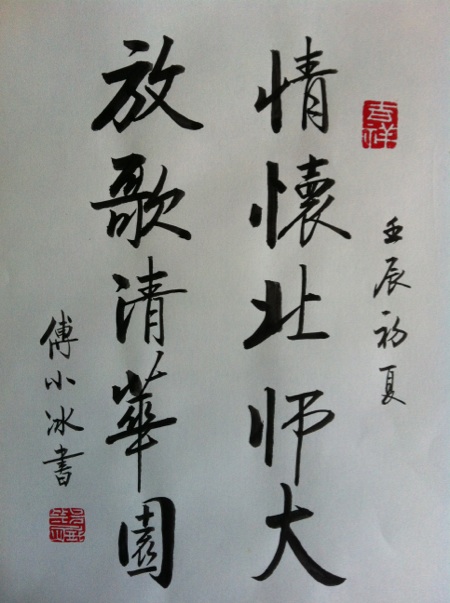 吉祥
壬辰初夏
情懷北师大
放歌清華園
傅小冰書